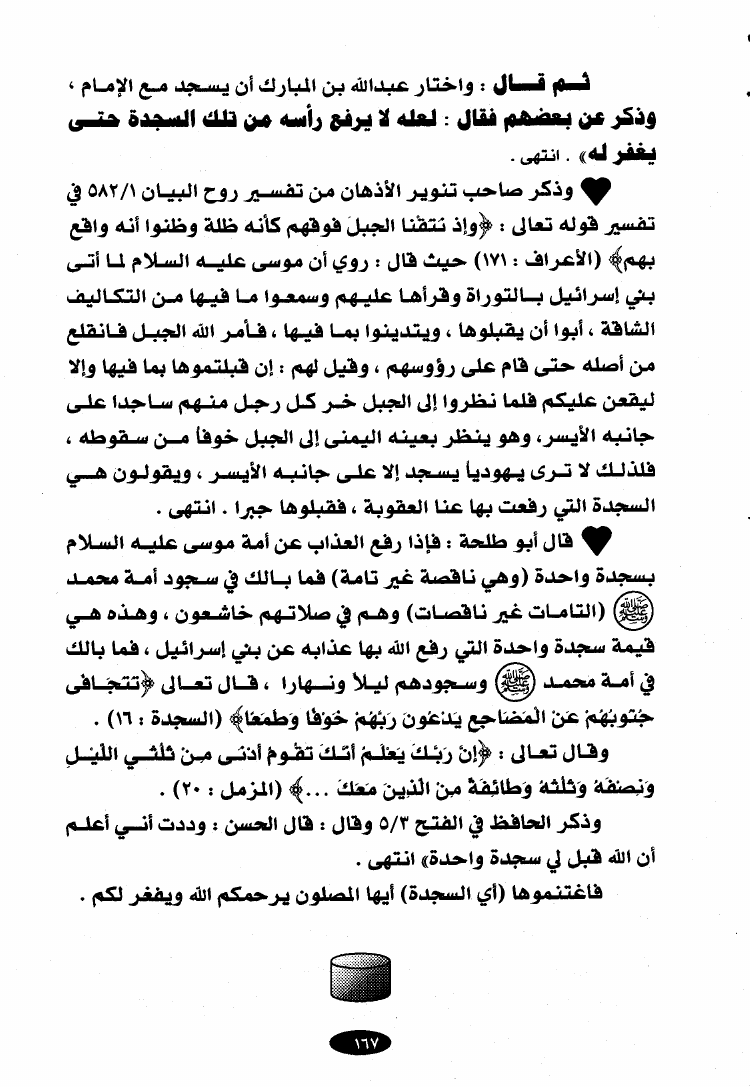 ثـم قـال : واختار عبدالله بن المبارك أن يسجد مع الإمام ،
وذكر عن بعضهم فقال : لعله لا يرفع رأسه من تلك السجدة حتى
يغفر له» . انتهى .
وذكر صاحب تنوير الأذهان من تفسير روح البيان ٥٨٢/١ في
تفسير قوله تعالى : ﴿وإذ نتقنا الجبل فوقهم كأنه ظلة وظنوا أنه واقع
بهم﴾ (الأعراف : ١٧١) حيث قال : روي أن موسى عليه السلام لما أتى
بني إسرائيل بالتوراة وقرأها عليهم وسمعوا ما فيها من التكاليف
الشاقة ، أبوا أن يقبلوها ، ويتدينوا بما فيها ، فأمر الله الجبل فانقلع
من أصله حتى قام على رؤوسهم ، وقيل لهم : إن قبلتموها بما فيها وإلا
ليقعن عليكم فلما نظروا إلى الجبل خر كل رجل منهم ساجدا على
جانبه الأيسر، وهو ينظر بعينه اليمنى إلى الجبل خوفاً من سقوطه ،
فلذلك لا ترى يهودياً يسجد إلا على جانبه الأيسر ، ويقولون هي
السجدة التي رفعت بها عنا العقوبة ، فقبلوها جبرا . انتهى .
قال أبو طلحة : فإذا رفع العذاب عن أمة موسى عليه السلام
بسجدة واحدة (وهي ناقصة غير تامة) فما بالك في سجود أمة محمد
ﷺ (التامات غير ناقصات) وهم في صلاتهم خاشعون ، وهذه هي
قيمة سجدة واحدة التي رفع الله بها عذابه عن بني إسرائيل ، فما بالك
في أمة محمد ﷺ وسجودهم ليلاً ونهارا ، قال تعالى ﴿تتجافى
جُنُوبُهُمْ عَنِ الْمَضَاجِعِ يَدْعُونَ رَبَّهُمْ خَوْفًا وَطَمَعًا﴾ (السجدة : ١٦) .
وقال تعالى : ﴿إِنَّ رَبَّكَ يَعْلَمُ أَنَّكَ تَقُومُ أَدْنَى مِنْ ثُلُثَيِ اللَّيْلِ
وَنِصْفَهُ وَثُلُثَهُ وَطَائِفَةٌ مِنَ الَّذِينَ مَعَكَ ...﴾ (المزمل : ٢٠) .
وذكر الحافظ في الفتح ٥/٣ وقال : قال الحسن : وددت أني أعلم
أن الله قبل لي سجدة واحدة» انتهى .
فاغتنموها (أي السجدة) أيها المصلون يرحمكم الله ويغفر لكم .
١٦٧